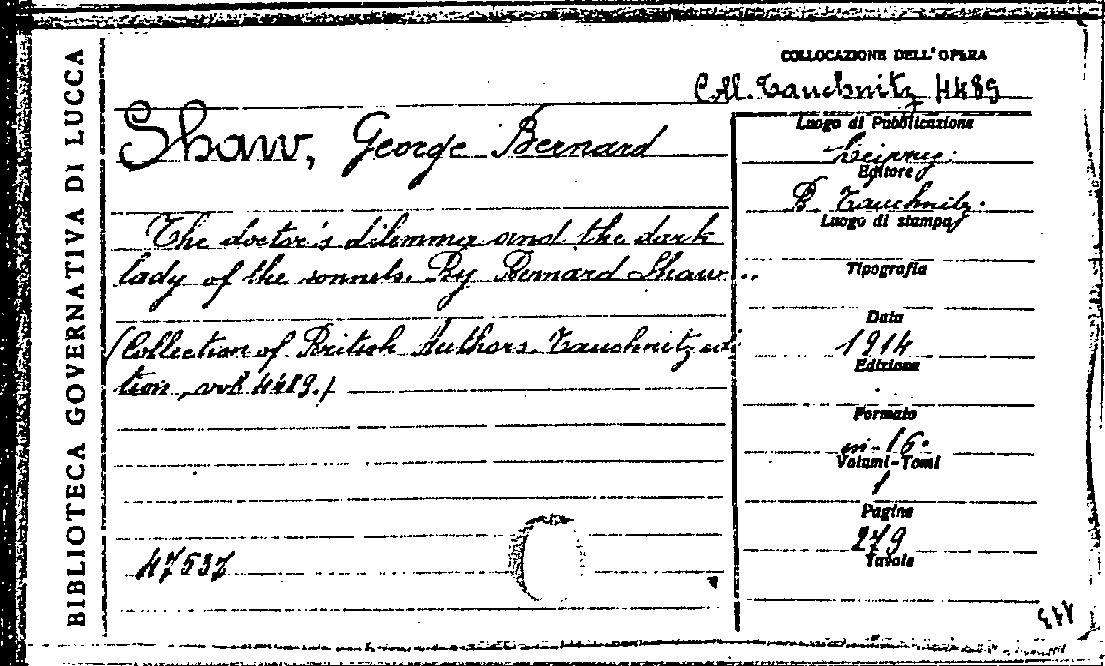 BIBLIOTECA GOVERNATIVA DI LUCCA
COLLOCAZIONE DELL'OPERA
Coll. Tauchnitz 4489
Shaw, George Bernard
The doctor's dilemma and the dark
lady of the sonnets. By Bernard Shaw...
(Collection of British Authors Tauchnitz edi
tion, vol 4489.)
47537
Luogo di Pubblicazione
Leipzig.
Editore
B. Tauchnitz.
Luogo di stampa
Tipografia
Data
1914
Edizione
Formato
in-16°
Volumi-Tomi
1
Pagine
279
Tavole